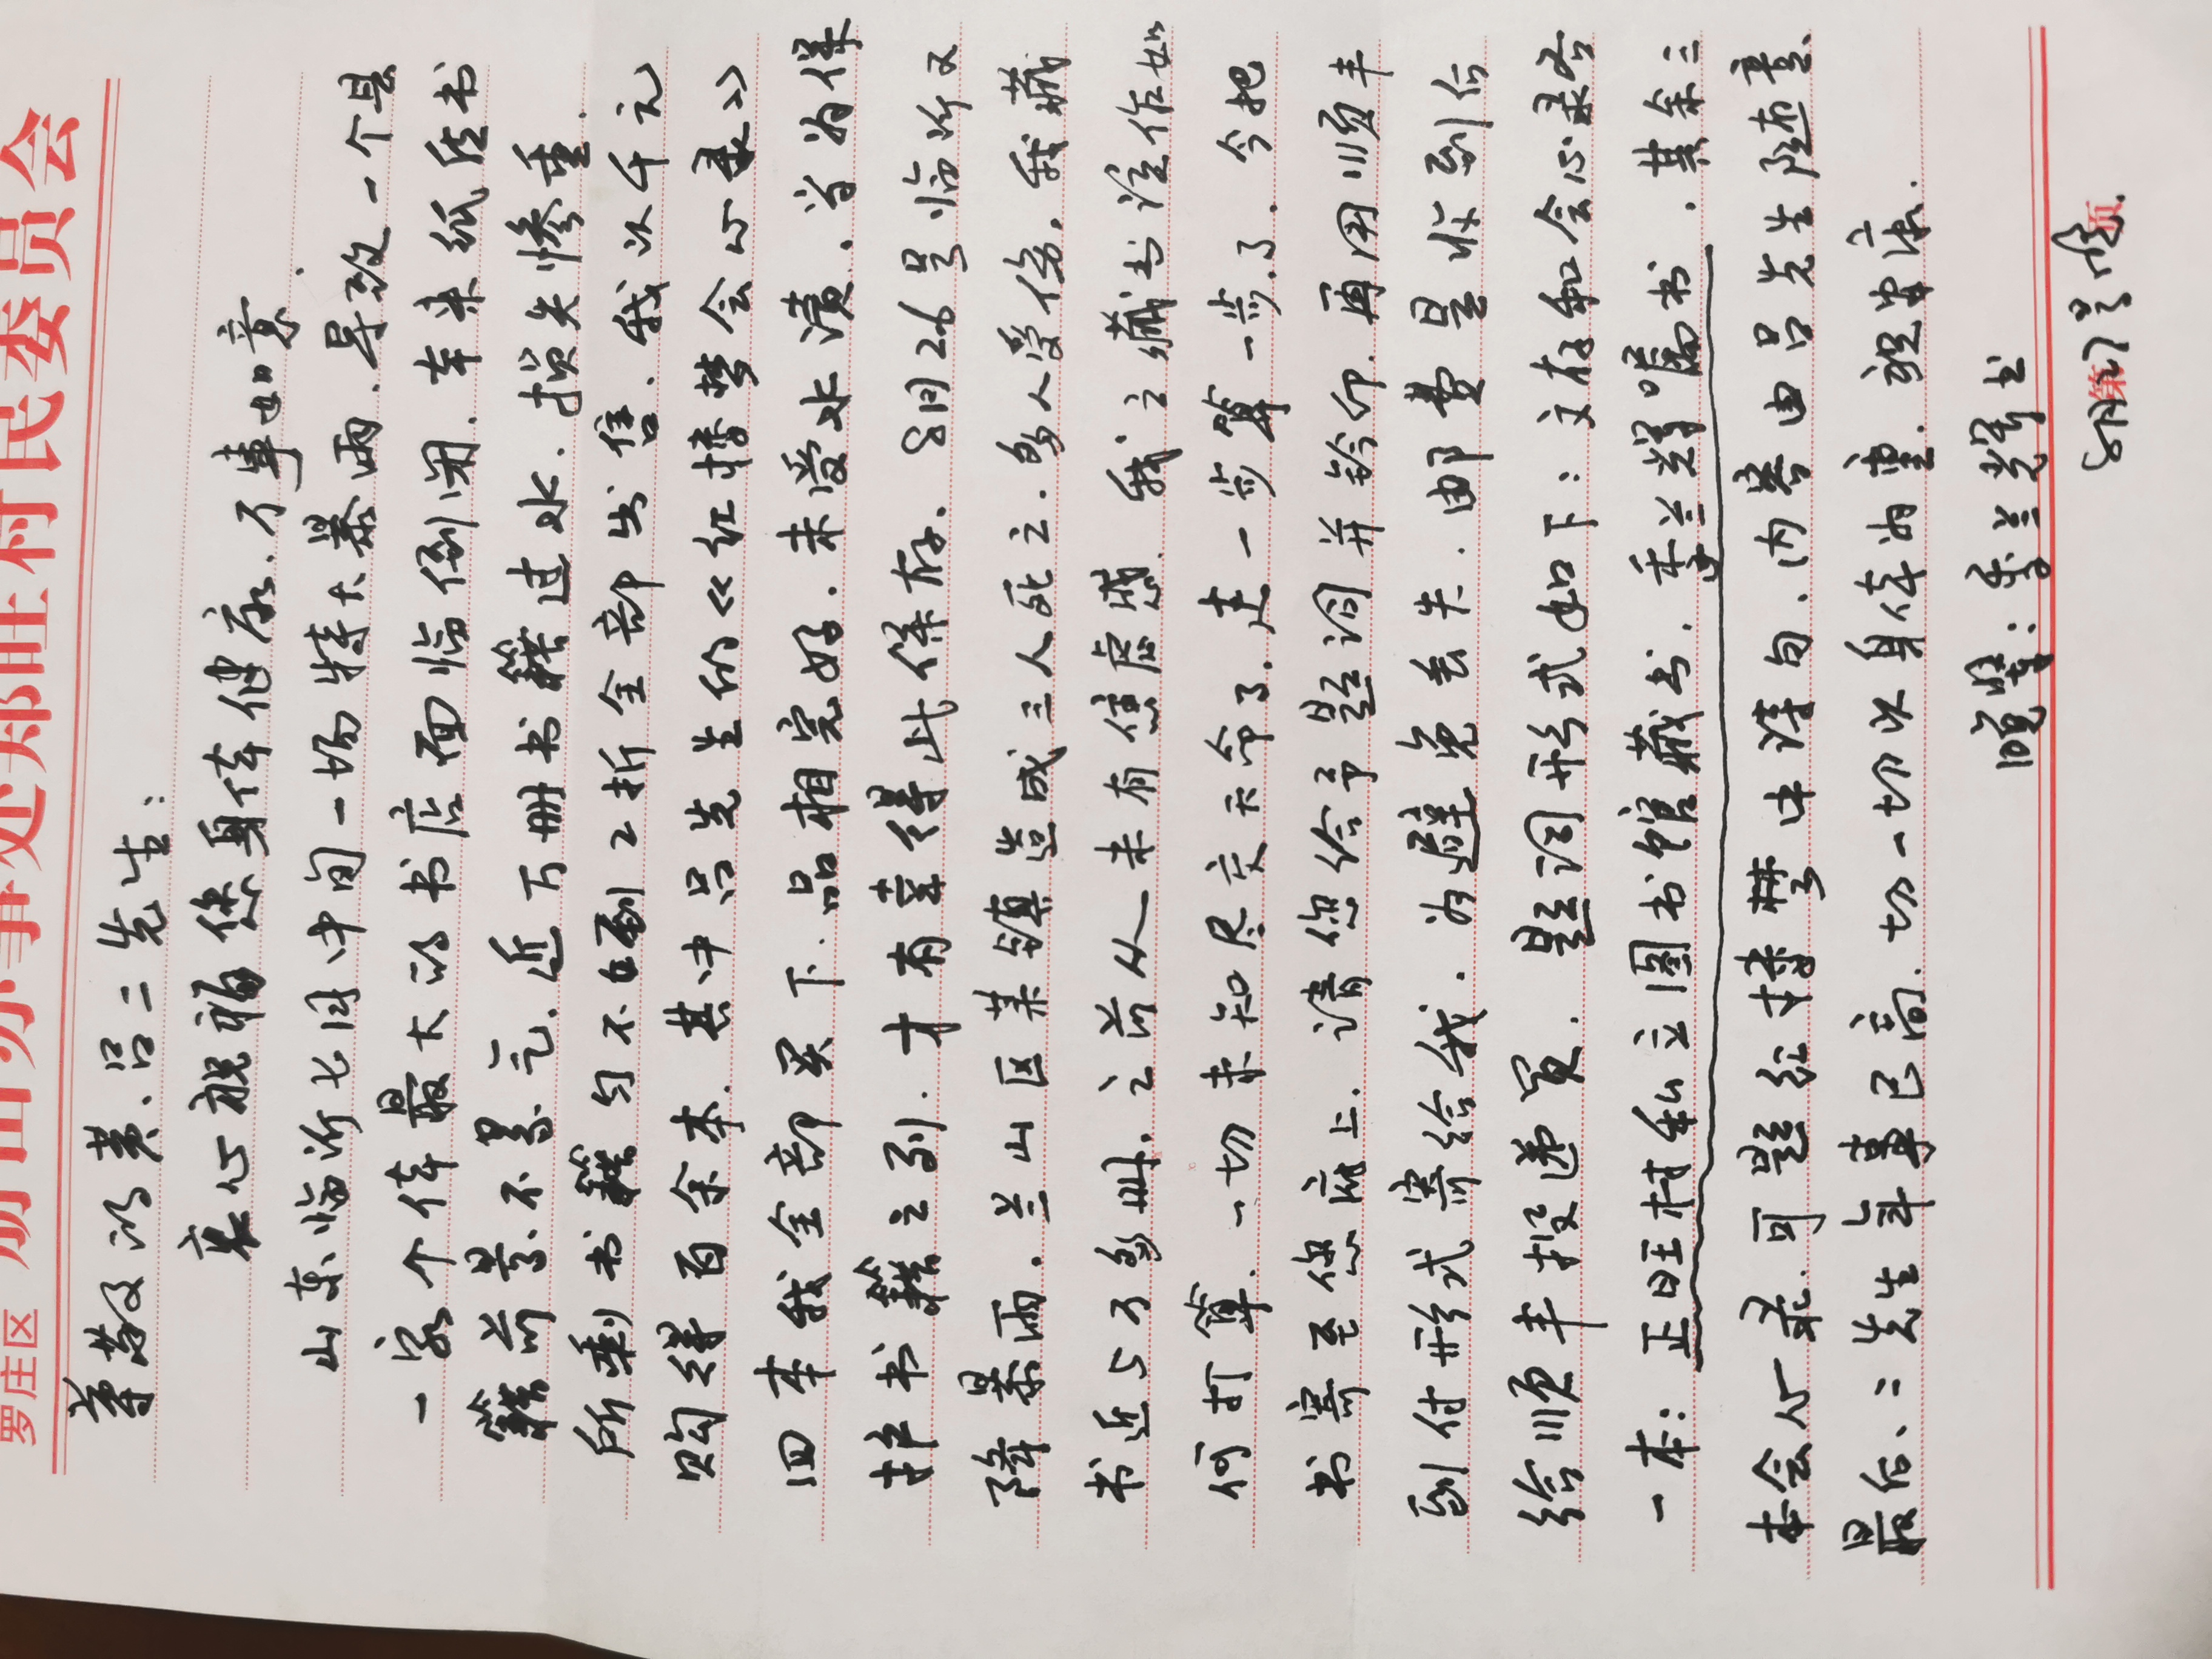 罗庄区 册山办事处郑旺村民委员会
尊敬的黄、吕二先生:
衷心祝福您身体健康、万事如意.
山东临沂七月中旬一场特大暴雨.导致一个县
一家个体最大的书店面临倒闭.本来纸质书
籍前景不景气.近万册书籍过水.损失惨重.
所剩书籍匀不到2折全部出售.我以千元
购得百余本.其中吕先生的《红楼梦会心录》
四本我全部买下.品相完好.未受水渍.当为保
护书籍之列.才有幸得此保存.8月26号临沂又
降暴雨.兰山区某镇造成三人死亡.多人受伤.我藏
书近5万多册.之前从未有焦虑感.我之藏书该作如
何打算.一切未知尽交天命了.走一步算一步.了.今把
书寄至您府上.请您给予题词并钤印.再用顺丰
到付形式寄给我.为避免丢失.邮费是收到后
给顺丰投递员.题词形式如下:文存和会心录各
一本:正旺村私立图书馆藏书.季兰辉嘱书.其余三
本会心录.可题红楼梦中诗句.内容由吕先生随意.
最后、二先生年事已高.切一切以身体为重.祝安康.
晚辈:季兰辉书
8月27号晚.
第 页